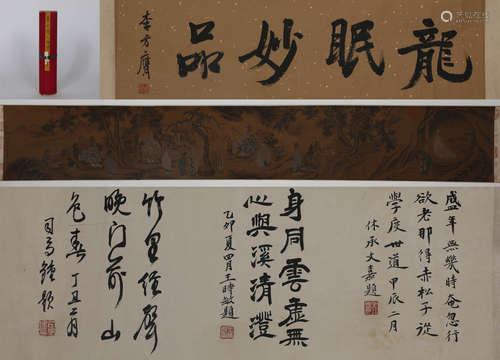 龍眠妙品
李方膺
盛年無幾時奄忽行
欲老那得赤松子從
學度世道甲辰二月
休承文嘉題
身同雲虛無
心與溪清澄
乙卯夏四月王時敏題
竹里經聲
晚門前山
色春丁丑二月
司馬鍾題